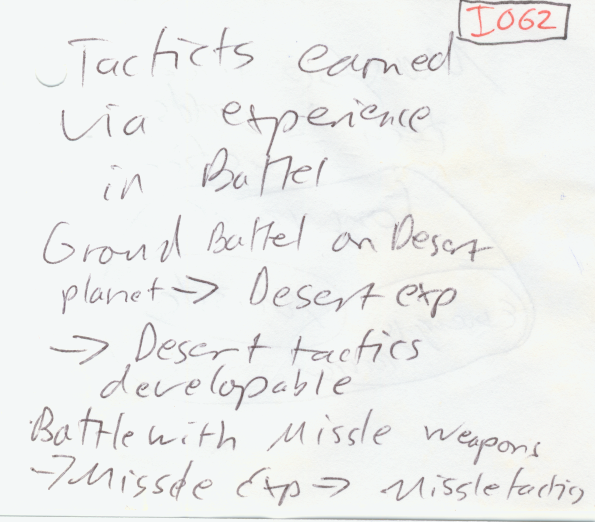 I062
Tacticts earned
via experience
in Battel
Ground Battel on Desert
planet -> Desert exp
-> Desert tactics
developable
Battle with Missle weapons
-> Missle Exp -> Missle tactics